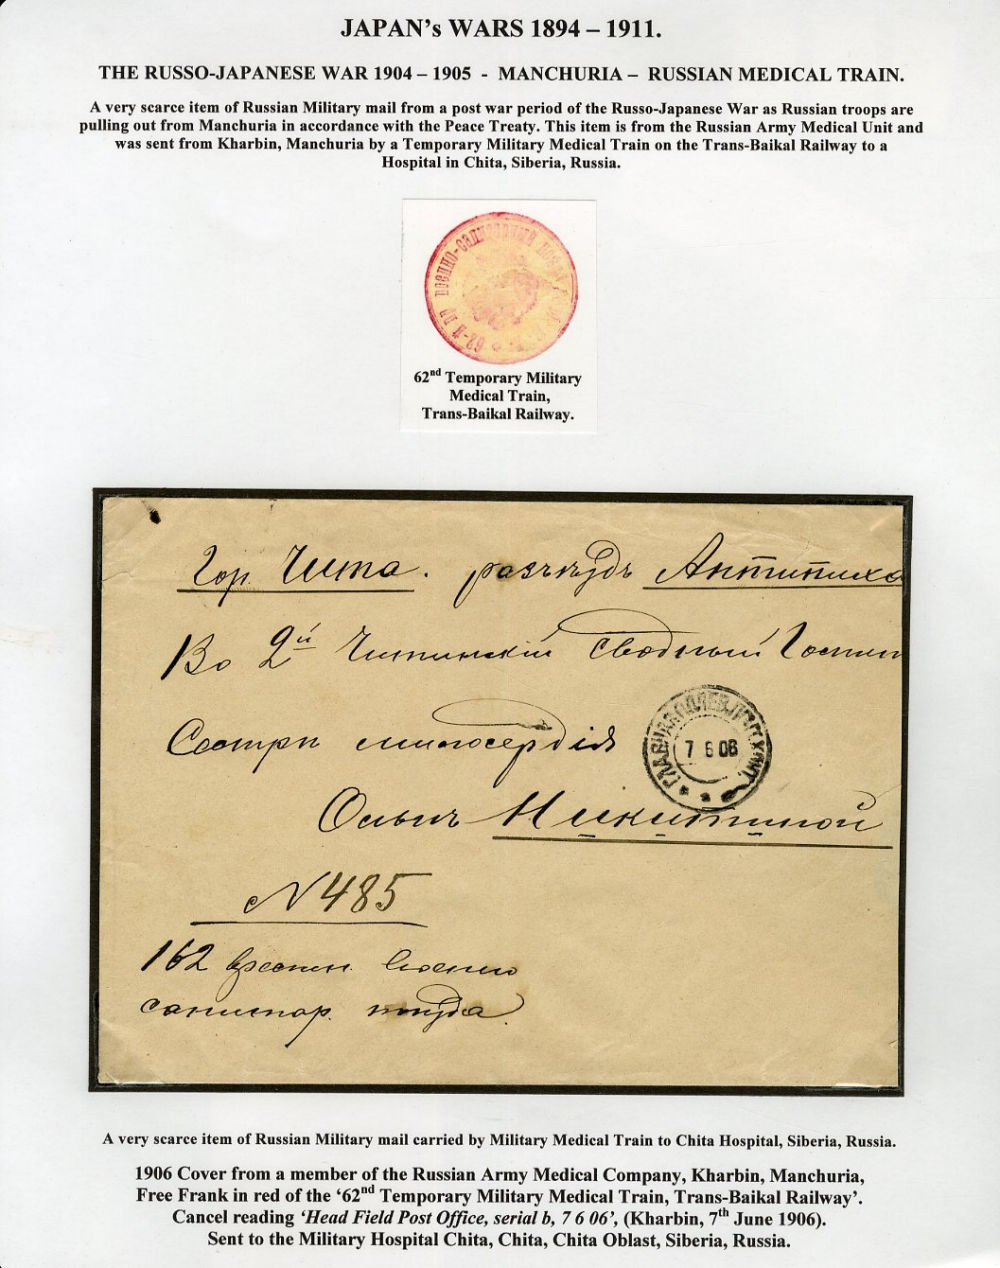 JAPAN's WARS 1894 – 1911.
THE RUSSO-JAPANESE WAR 1904 – 1905 - MANCHURIA – RUSSIAN MEDICAL TRAIN.
A very scarce item of Russian Military mail from a post war period of the Russo-Japanese War as Russian troops are
pulling out from Manchuria in accordance with the Peace Treaty. This item is from the Russian Army Medical Unit and
was sent from Kharbin, Manchuria by a Temporary Military Medical Train on the Trans-Baikal Railway to a
Hospital in Chita, Siberia, Russia.
62-й ВР. ВОЕННО-САНИТАРНЫЙ
62nd Temporary Military
Medical Train,
Trans-Baikal Railway.
Гор. Чита. разъѣздъ Антипиха
Во 2й Читинскій сводный Госпит
Сестрѣ милосердія
ГЛАВНАЯ ПОЛЕВ.
7 6 06
Ольгѣ Никитиной
N 485
162 времен. военно
санитар. поѣзда.
A very scarce item of Russian Military mail carried by Military Medical Train to Chita Hospital, Siberia, Russia.
1906 Cover from a member of the Russian Army Medical Company, Kharbin, Manchuria,
Free Frank in red of the ‘62nd Temporary Military Medical Train, Trans-Baikal Railway’.
Cancel reading ‘Head Field Post Office, serial b, 7 6 06’, (Kharbin, 7th June 1906).
Sent to the Military Hospital Chita, Chita, Chita Oblast, Siberia, Russia.